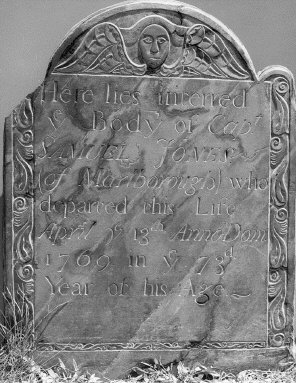 Here lies interred
yᵉ Body of Capᵗ
SAMUEL JONES
(of Marlborough) who
departed this Life
April yᵉ 13ᵗʰ Anno Dom
1769 in yᵉ 73ᵈ
Year of his Age